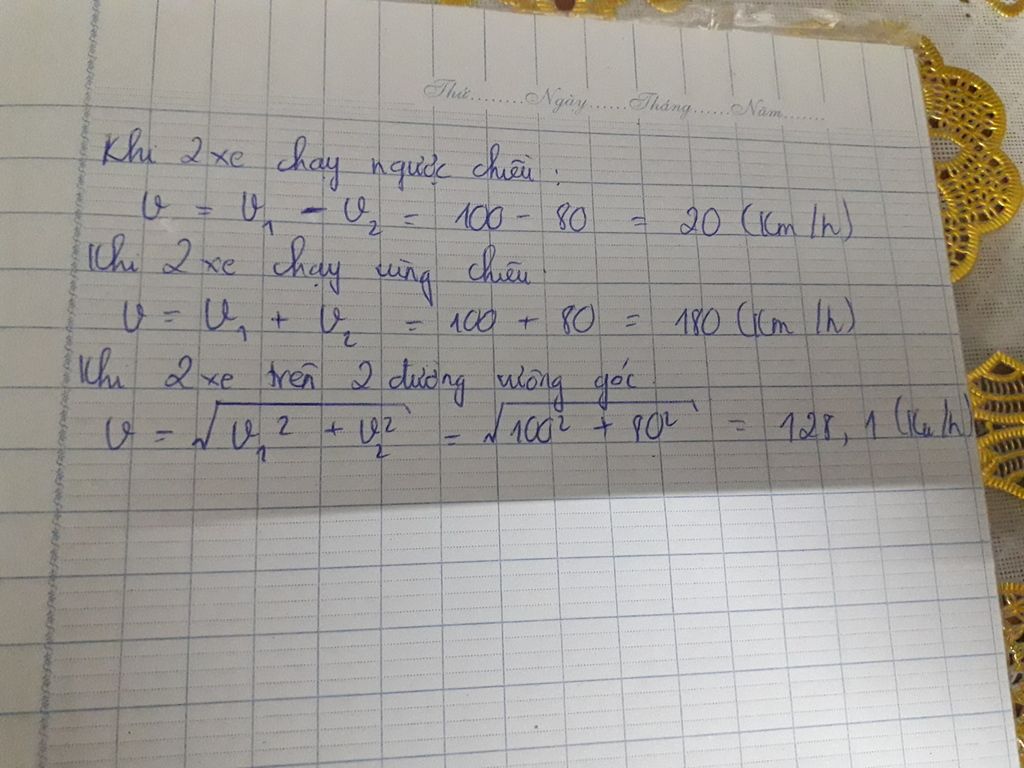 Thứ........Ngày......Tháng......Năm.......
Khi 2 xe chạy ngược chiều :
v = v₁ - v₂ = 100 - 80 = 20 (Km/h)
Khi 2 xe chạy cùng chiều
v = v₁ + v₂ = 100 + 80 = 180 (Km/h)
Khi 2 xe trên 2 đường vuông góc
v = √(v₁² + v₂²) = √(100² + 80²) = 128,1 (Km/h)